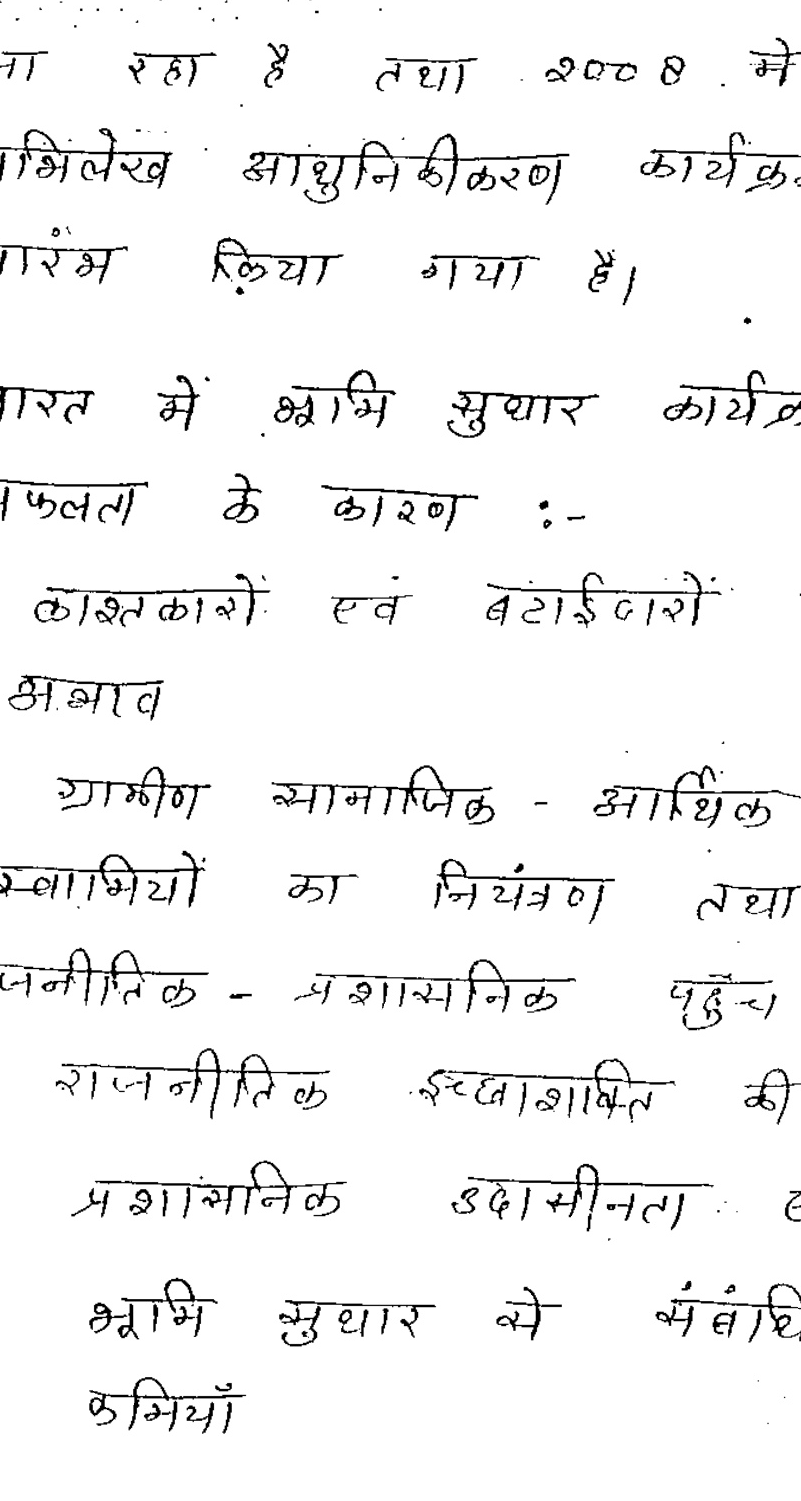 रहा है तथा 2008 में
भिलेख आधुनिकीकरण कार्यक्र
ारंभ किया गया है।
ारत में भूमि सुधार कार्यक्र
फलता के कारण :-
काश्तकारों एवं बटाईदारों
अभाव
ग्रामीण सामाजिक - आर्थिक
स्वामियों का नियंत्रण तथा
जनीतिक - प्रशासनिक पहुँच
राजनीतिक इच्छाशक्ति की
प्रशासनिक उदासीनता
भूमि सुधार से संबंधि
कमियाँ